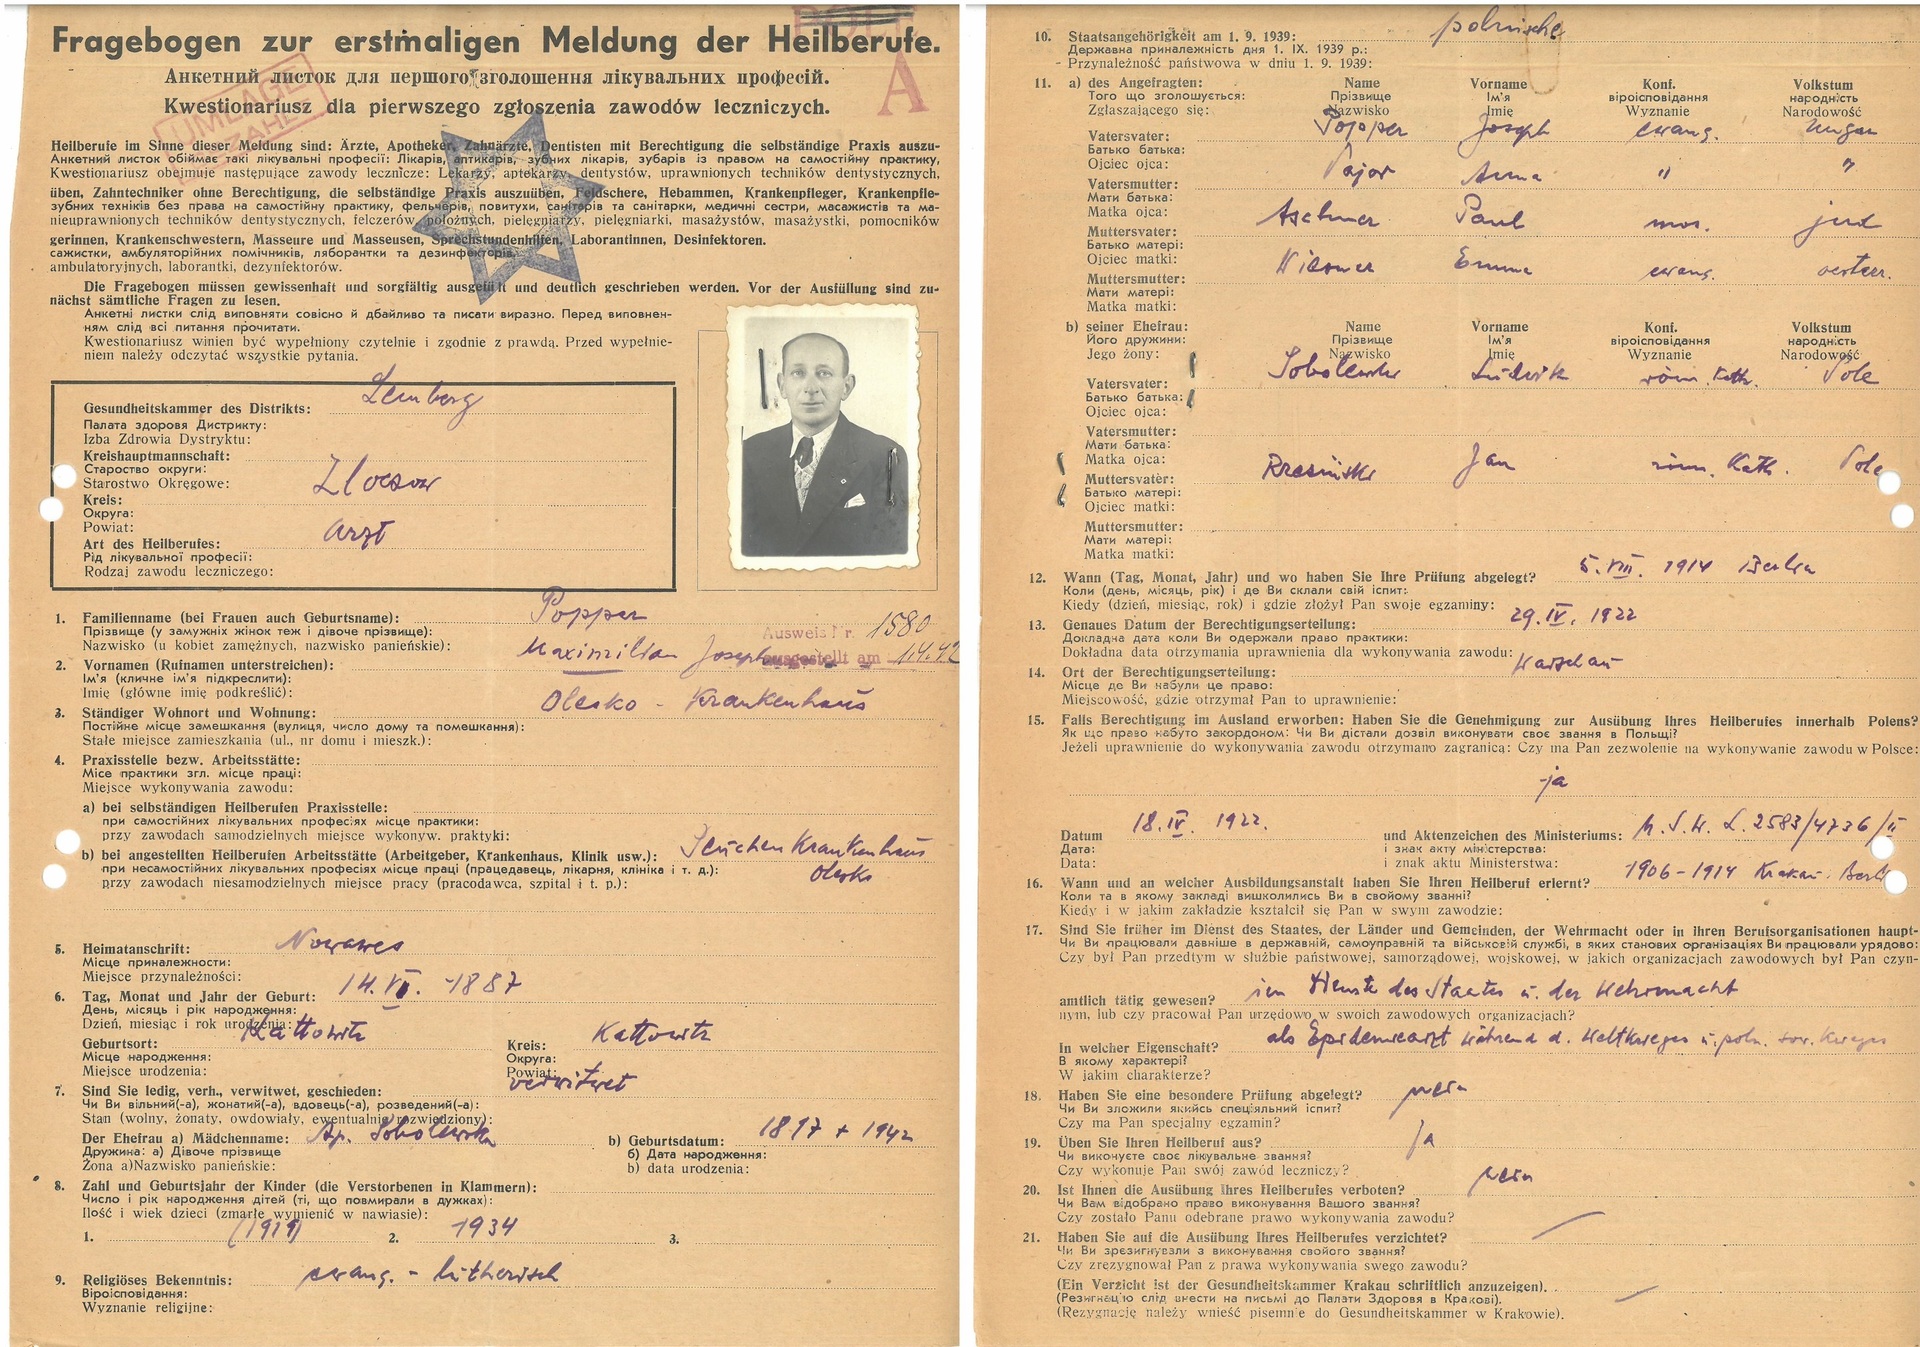 Fragebogen zur erstmaligen Meldung der Heilberufe.
Анкетний листок для першого зголошення лікувальних професій.
Kwestionariusz dla pierwszego zgłoszenia zawodów leczniczych.
A
UMLAGE
ZAHLT
Heilberufe im Sinne dieser Meldung sind: Ärzte, Apotheker, Zahnärzte, Dentisten mit Berechtigung die selbständige Praxis auszu-
Анкетний листок обіймає такі лікувальні професії: Лікарів, аптикарів, зубних лікарів, зубарів із правом на самостійну практику,
Kwestionariusz obejmuje następujące zawody lecznicze: Lekarzy, aptekarzy, dentystów, uprawnionych techników dentystycznych,
üben, Zahntechniker ohne Berechtigung, die selbständige Praxis auszuüben, Feldschere, Hebammen, Krankenpfleger, Krankenpfle-
зубних техніків без права на самостійну практику, фельчерів, повитухи, санітарів та санітарки, медичні сестри, масажистів та ма-
nieuprawnionych techników dentystycznych, felczerów, położnych, pielęgniarzy, pielęgniarki, masażystów, masażystki, pomocników
gerinnen, Krankenschwestern, Masseure und Masseusen, Sprechstundenhilfen, Laborantinnen, Desinfektoren.
сажистки, амбуляторійних помічників, ляборантки та дезинфекторів.
ambulatoryjnych, laborantki, dezynfektorów.
Die Fragebogen müssen gewissenhaft und sorgfältig ausgefüllt und deutlich geschrieben werden. Vor der Ausfüllung sind zu-
nächst sämtliche Fragen zu lesen.
Анкетні листки слід виповняти совісно й дбайливо та писати виразно. Перед виповнен-
ням слід всі питання прочитати.
Kwestionariusz winien być wypełniony czytelnie i zgodnie z prawdą. Przed wypełnie-
niem należy odczytać wszystkie pytania.
Gesundheitskammer des Distrikts: Lemberg
Палата здоровя Дистрикту:
Izba Zdrowia Dystryktu:
Kreishauptmannschaft:
Староство округи:
Starostwo Okręgowe: Zloczow
Kreis:
Округа:
Powiat:
Art des Heilberufes: Arzt
Рід лікувальної професії:
Rodzaj zawodu leczniczego:
1. Familienname (bei Frauen auch Geburtsname): Popper
Прізвище (у замужніх жінок теж і дівоче прізвище):
Nazwisko (u kobiet zamężnych, nazwisko panieńskie):
Ausweis Nr. 1580
ausgestellt am 1.4.42
2. Vornamen (Rufnamen unterstreichen): Maximilian Joseph
Ім'я (кличне ім'я підкреслити):
Imię (główne imię podkreślić):
3. Ständiger Wohnort und Wohnung: Olesko - Krankenhaus
Постійне місце замешкання (вулиця, число дому та помешкання):
Stałe miejsce zamieszkania (ul., nr domu i mieszk.):
4. Praxisstelle bezw. Arbeitsstätte:
Місе практики згл. місце праці:
Miejsce wykonywania zawodu:
a) bei selbständigen Heilberufen Praxisstelle:
при самостійних лікувальних професіях місце практики:
przy zawodach samodzielnych miejsce wykonyw. praktyki:
b) bei angestellten Heilberufen Arbeitsstätte (Arbeitgeber, Krankenhaus, Klinik usw.): Seuchenkrankenhaus
при несамостійних лікувальних професіях місце праці (працедавець, лікарня, клініка і т. д.): Olesko
przy zawodach niesamodzielnych miejsce pracy (pracodawca, szpital i t. p.):
5. Heimatanschrift: Nowawes
Місце приналежности:
Miejsce przynależności:
6. Tag, Monat und Jahr der Geburt: 14. VI. 1887
День, місяць і рік народження:
Dzień, miesiąc i rok urodzenia:
Geburtsort: Kattowitz Kreis: Kattowitz
Місце народження: Округа:
Miejsce urodzenia: Powiat:
7. Sind Sie ledig, verh., verwitwet, geschieden: verwitwet
Чи Ви вільний(-а), жонатий(-а), вдовець(-а), розведений(-а):
Stan (wolny, żonaty, owdowiały, ewentualnie rozwiedziony):
Der Ehefrau a) Mädchenname: Ap. Sobolewska b) Geburtsdatum: 1897 + 1942
Дружина: а) Дівоче прізвище б) Дата народження:
Żona a)Nazwisko panieńskie: b) data urodzenia:
8. Zahl und Geburtsjahr der Kinder (die Verstorbenen in Klammern):
Число і рік народження дітей (ті, що повмирали в дужках):
Ilość i wiek dzieci (zmarłe wymienić w nawiasie):
1. (1919) 2. 1934 3.
9. Religiöses Bekenntnis: evang. - lutherisch
Віроісповідання:
Wyznanie religijne:
10. Staatsangehörigkeit am 1. 9. 1939: polnische
Державна приналежність дня 1. IX. 1939 р.:
Przynależność państwowa w dniu 1. 9. 1939:
11. a) des Angefragten: Name Vorname Konf. Volkstum
Того що зголошується: Прізвище Ім'я віроісповідання народність
Zgłaszającego się: Nazwisko Imię Wyznanie Narodowość
Vatersvater: Popper Joseph evang. Ungar
Батько батька:
Ojciec ojca: Pajor Anna " "
Vatersmutter:
Мати батька:
Matka ojca: Aschner Paul mos. jud
Muttersvater:
Батько матері:
Ojciec matki: Emma evang. oesterr.
Muttersmutter:
Мати матері:
Matka matki:
b) seiner Ehefrau: Name Vorname Konf. Volkstum
Його дружини: Прізвище Ім'я віроісповідання народність
Jego żony: Nazwisko Imię Wyznanie Narodowość
Sobolewski Ludwik röm. Kath. Pole
Vatersvater:
Батько батька:
Ojciec ojca:
Vatersmutter:
Мати батька:
Matka ojca: Rzesinski Jan röm. Kath. Pole
Muttersvater:
Батько матері:
Ojciec matki:
Muttersmutter:
Мати матері:
Matka matki:
12. Wann (Tag, Monat, Jahr) und wo haben Sie Ihre Prüfung abgelegt? 5. VIII. 1914 Berlin
Коли (день, місяць, рік) і де Ви склали свій іспит:
Kiedy (dzień, miesiąc, rok) i gdzie złożył Pan swoje egzaminy:
13. Genaues Datum der Berechtigungserteilung: 29. IV. 1922
Докладна дата коли Ви одержали право практики:
Dokładna data otrzymania uprawnienia dla wykonywania zawodu:
14. Ort der Berechtigungserteilung: Warschau
Місце де Ви набули це право:
Miejscowość, gdzie otrzymał Pan to uprawnienie:
15. Falls Berechtigung im Ausland erworben: Haben Sie die Genehmigung zur Ausübung Ihres Heilberufes innerhalb Polens?
Як що право набуто закордоном: Чи Ви дістали дозвіл виконувати своє звання в Польщі?
Jeżeli uprawnienie do wykonywania zawodu otrzymano zagranicą: Czy ma Pan zezwolenie na wykonywanie zawodu w Polsce:
ja
Datum 18. IV. 1922. und Aktenzeichen des Ministeriums: M.S.W. L. 2583/4736/II
Дата: і знак акту міністерства:
Data: i znak aktu Ministerstwa:
16. Wann und an welcher Ausbildungsanstalt haben Sie Ihren Heilberuf erlernt? 1906-1914 Krakau. Berlin
Коли та в якому закладі вишколились Ви в свойому званні?
Kiedy i w jakim zakładzie kształcił się Pan w swym zawodzie:
17. Sind Sie früher im Dienst des Staates, der Länder und Gemeinden, der Wehrmacht oder in Ihren Berufsorganisationen haupt-
Чи Ви працювали давніше в державній, самоуправній та військовій службі, в яких станових організаціях Ви працювали урядово:
Czy był Pan przedtym w służbie państwowej, samorządowej, wojskowej, w jakich organizacjach zawodowych był Pan czyn-
amtlich tätig gewesen? im Dienste des Staates u. der Wehrmacht
nym, lub czy pracował Pan urzędowo w swoich zawodowych organizacjach?
In welcher Eigenschaft? als Epidemiearzt während d. Weltkrieges u. poln. sow. Krieges
В якому характері?
W jakim charakterze?
18. Haben Sie eine besondere Prüfung abgelegt? nein
Чи Ви зложили якийсь спеціяльний іспит?
Czy ma Pan specjalny egzamin?
19. Üben Sie Ihren Heilberuf aus? ja
Чи виконуєте своє лікувальне звання?
Czy wykonuje Pan swój zawód leczniczy?
20. Ist Ihnen die Ausübung Ihres Heilberufes verboten? nein
Чи Вам відобрано право виконування Вашого звання?
Czy zostało Panu odebrane prawo wykonywania zawodu?
21. Haben Sie auf die Ausübung Ihres Heilberufes verzichtet?
Чи Ви зрезигнували з виконування свойого звання?
Czy zrezygnował Pan z prawa wykonywania swego zawodu?
(Ein Verzicht ist der Gesundheitskammer Krakau schriftlich anzuzeigen).
(Резигнацію слід внести на письмі до Палати Здоровя в Кракові).
(Rezygnację należy wnieść pisemnie do Gesundheitskammer w Krakowie).